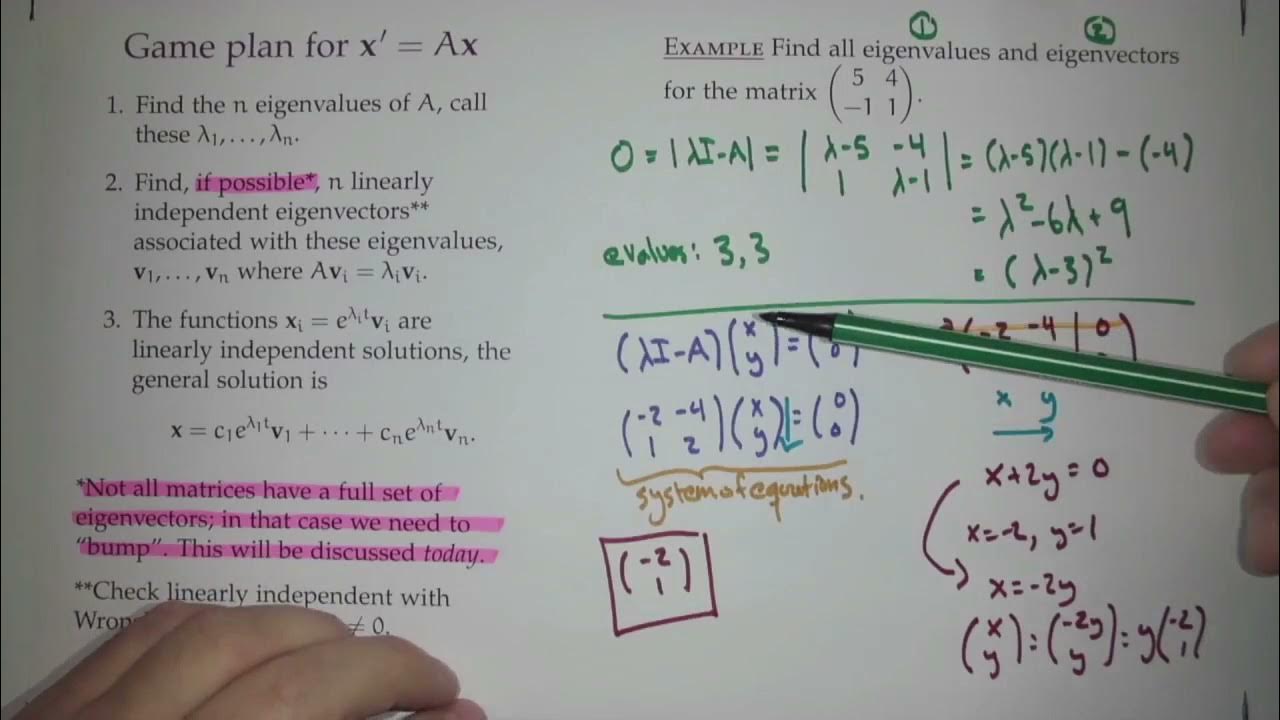 Game plan for x′ = Ax
1. Find the n eigenvalues of A, call
these λ₁, . . . , λₙ.
2. Find, if possible*, n linearly
independent eigenvectors**
associated with these eigenvalues,
v₁, . . . , vₙ where Avᵢ = λᵢvᵢ.
3. The functions xᵢ = e^{λᵢt}vᵢ are
linearly independent solutions, the
general solution is
x = c₁e^{λ₁t}v₁ + · · · + cₙe^{λₙt}vₙ.
*Not all matrices have a full set of
eigenvectors; in that case we need to
“bump”. This will be discussed today.
**Check linearly independent with
≠ 0.
① ②
EXAMPLE Find all eigenvalues and eigenvectors
for the matrix (5 4
−1 1).
0 = |λI-A| = |λ-5 -4
1 λ-1| = (λ-5)(λ-1) - (-4)
= λ² - 6λ + 9
= (λ-3)²
evalues: 3, 3
(λI-A)(x
y) = (
0)
(-2 -4
1 2)(x
y) = (0
0)
system of equations.
(-2
1)
-2 -4 | 0
x y
x+2y = 0
x=-2, y=1
x=-2y
(x
y) = (-2y
y) = y(-2
1)